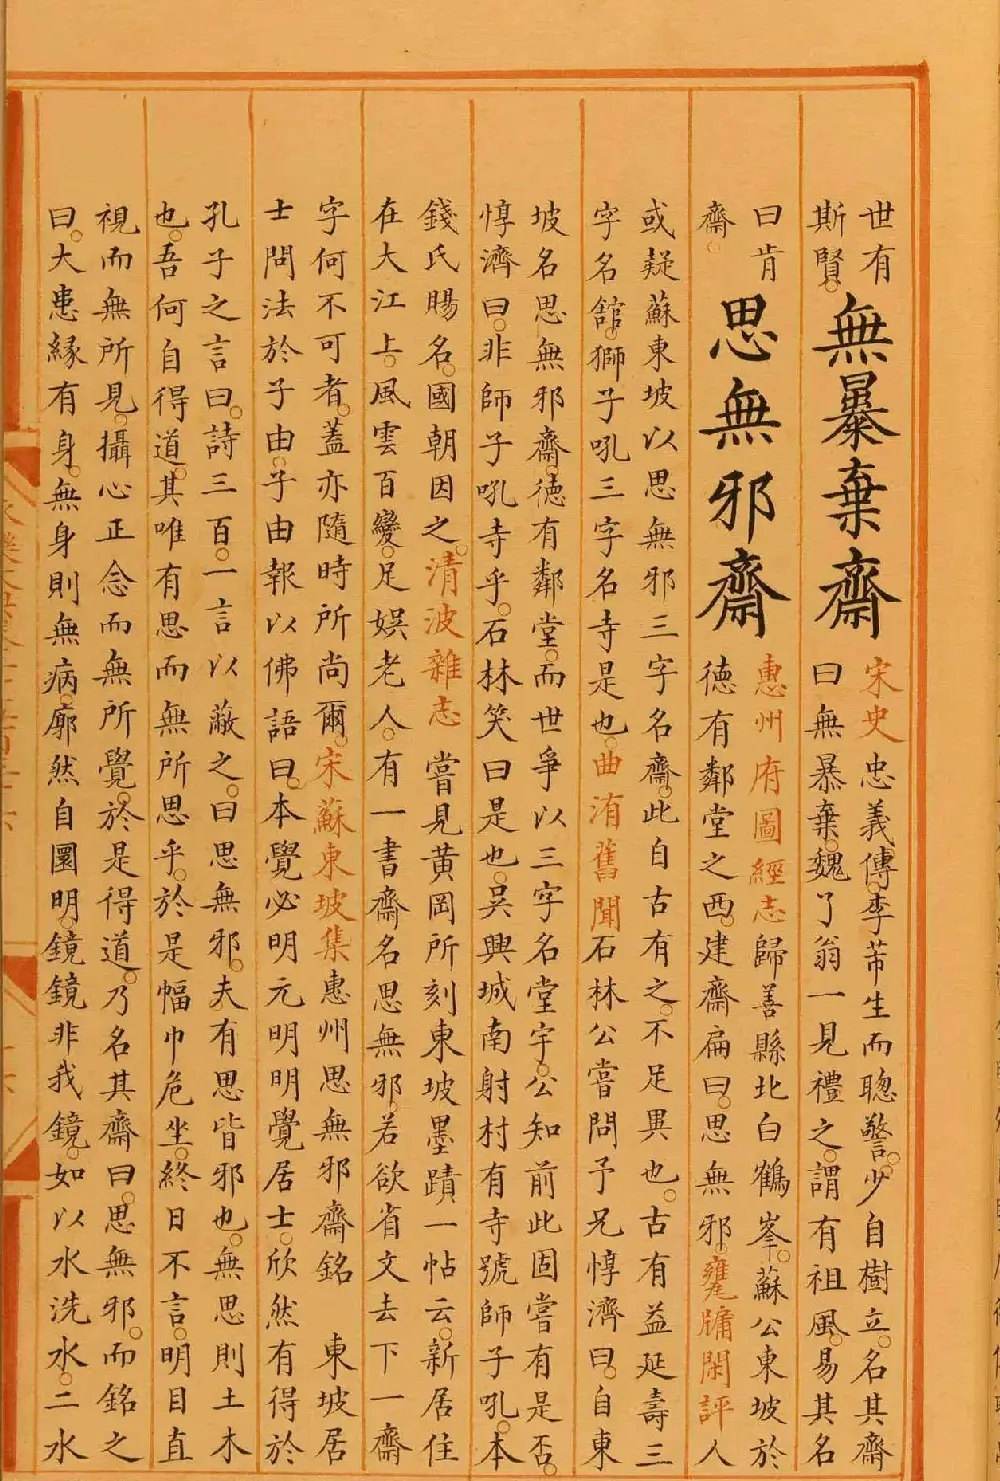 世有
斯賢。
無暴棄齋
宋史忠義傳。李芾生而聰警。少自樹立。名其齋
曰無暴棄。魏了翁一見禮之。謂有祖風。易其名
曰肯
齋。
思無邪齋
惠州府圖經志歸善縣北白鶴峯。蘇公東坡於
德有鄰堂之西。建齋扁曰。思無邪。甕牖閑評人
或疑蘇東坡以思無邪三字名齋。此自古有之。不足異也。古有益延壽三
字名館。獅子吼三字名寺是也。曲洧舊聞石林公嘗問予兄惇濟曰。自東
坡名思無邪齋。德有鄰堂。而世爭以三字名堂宇。公知前此固嘗有是否。
惇濟曰。非師子吼寺乎。石林笑曰是也。吳興城南射村有寺號師子吼。本
錢氏賜名。國朝因之。清波雜志 嘗見黃岡所刻東坡墨蹟一帖云。新居住
在大江上。風雲百變。足娛老人。有一書齋名思無邪。若欲省文去下一齋
字何不可者。蓋亦隨時所尚爾。宋蘇東坡集惠州思無邪齋銘 東坡居
士問法於子由。子由報以佛語曰。本覺必明元明明覺居士。欣然有得於
孔子之言曰。詩三百。一言以蔽之。曰思無邪。夫有思皆邪也。無思則土木
也。吾何自得道。其唯有思而無所思乎。於是幅巾危坐。終日不言。明目直
視而無所見。攝心正念而無所覺。於是得道。乃名其齋曰。思無邪。而銘之
曰。大患緣有身。無身則無病。廓然自圜明。鏡鏡非我鏡。如以水洗水。二水